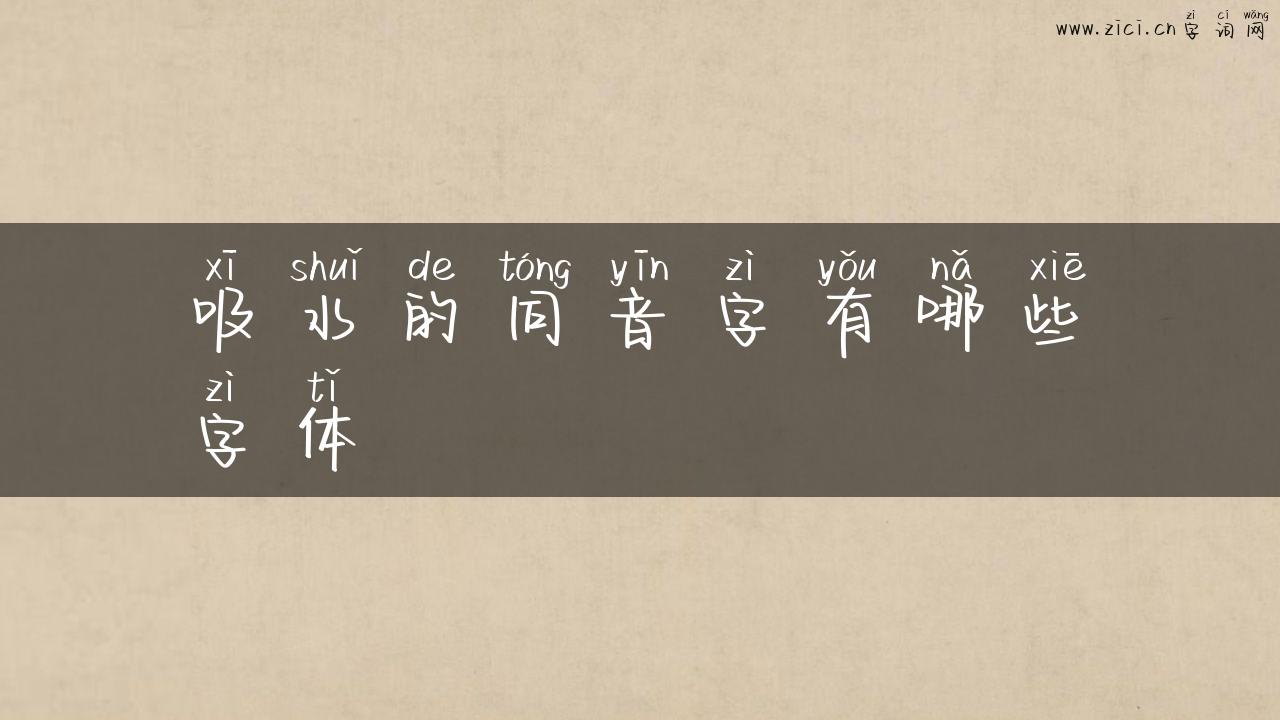 zì cí wǎng
www.zici.cn 字词网
xī shuǐ de tóng yīn zì yǒu nǎ xiē
吸水的同音字有哪些
zì tǐ
字体